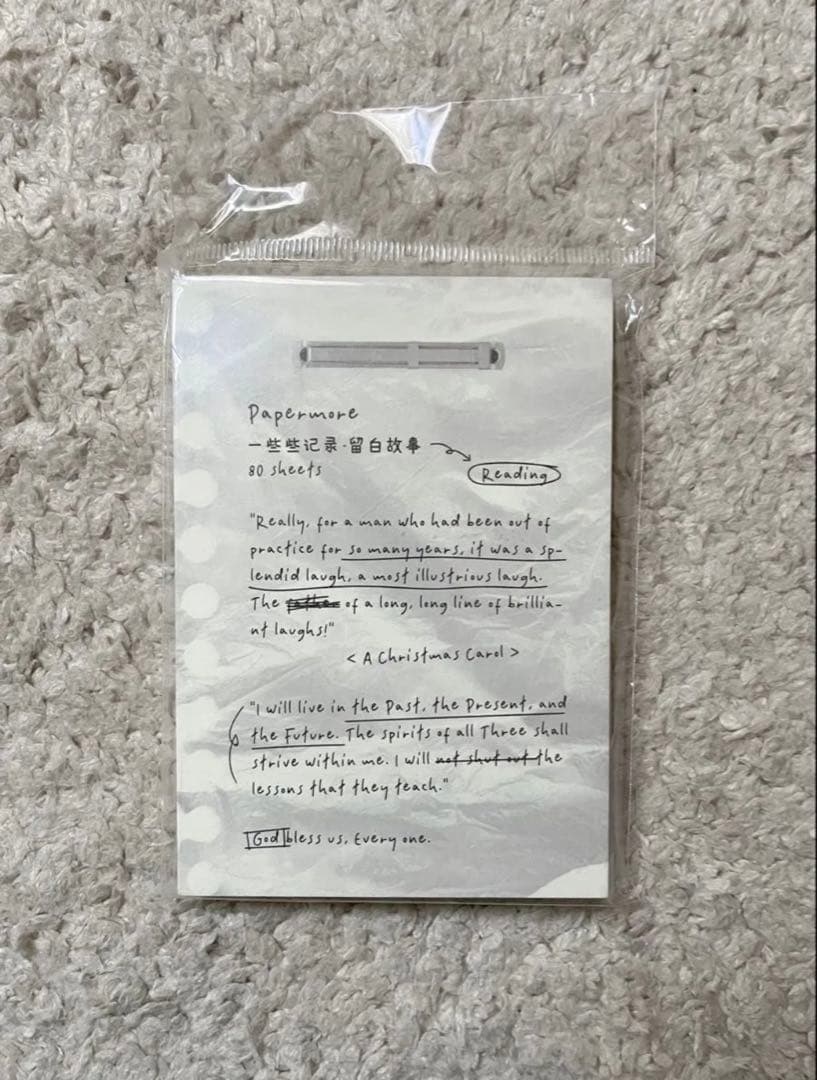 Papermore
一些些记录·留白故事
80 sheets
Reading
"Really, for a man who had been out of
practice for so many years, it was a sp-
lendid laugh, a most illustrious laugh.
The father of a long, long line of brillia-
nt laughs!"
< A Christmas Carol >
"I will live in the Past, the Present, and
the Future. The spirits of all Three shall
strive within me. I will not shut out the
lessons that they teach."
God bless us, Every one.